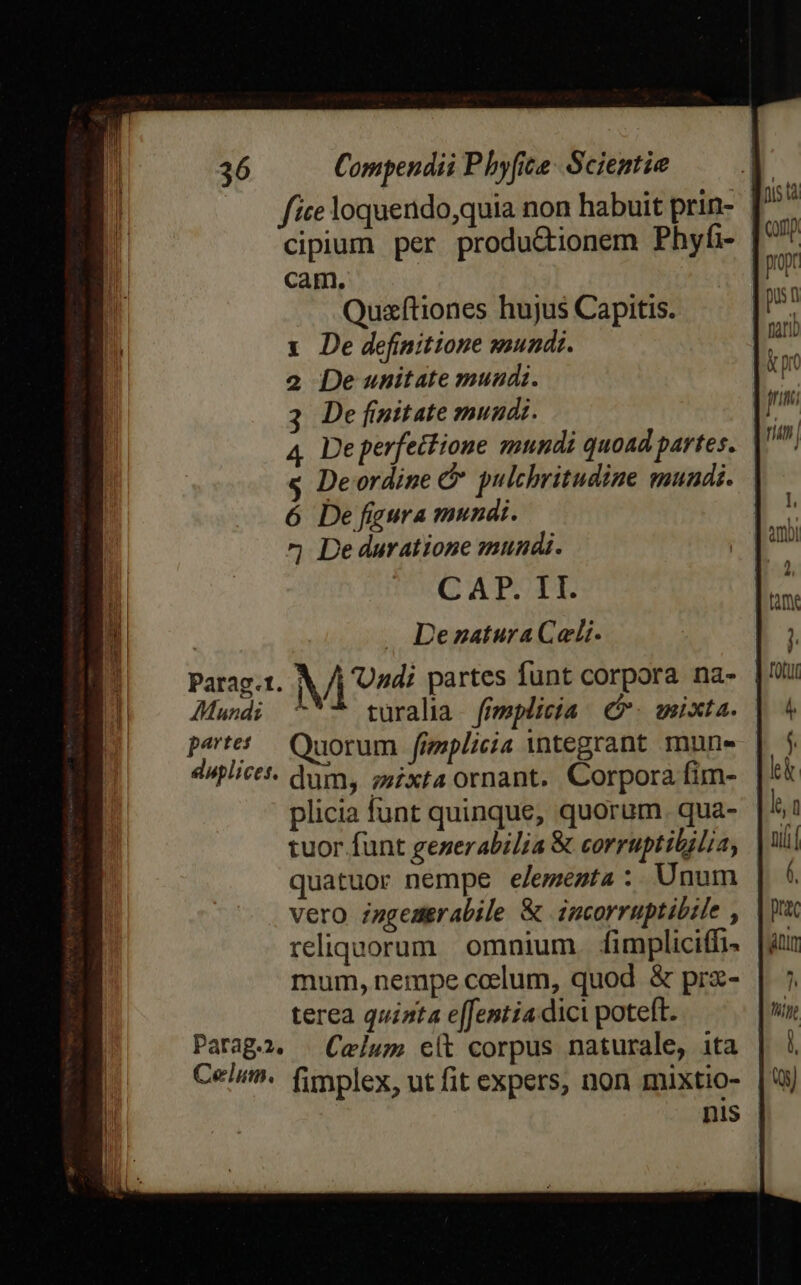 36 Compendii Phyſicæ Scientiæ
ſice loquendo, quia non habuit prin-
cipium per productionem Phyſi-
cam.
Quæſtiones hujus Capitis.
1 De definitione mundi.
2 De unitate mundi.
3 De finitate mundi.
4 De perfectione mundi quoad partes.
5 De ordine & pulchritudine mundi.
6 De figura mundi.
7 De duratione mundi.
CAP. II.
De natura Cœli.
Parag.1. MUndi partes ſunt corpora na-
Mundi turalia ſimplicia & mixta.
partes Quorum ſimplicia integrant mun-
duplices. dum, mixta ornant. Corpora ſim-
plicia ſunt quinque, quorum qua-
tuor ſunt generabilia & corruptibilia,
quatuor nempe elementa : Unum
vero ingenerabile & incorruptibile ,
reliquorum omnium ſimpliciſſi-
mum, nempe cœlum, quod & præ-
terea quinta eſſentia dici poteſt.
Parag.2. Cœlum eſt corpus naturale, ita
Cœlum. ſimplex, ut ſit expers, non mixtio-
nis